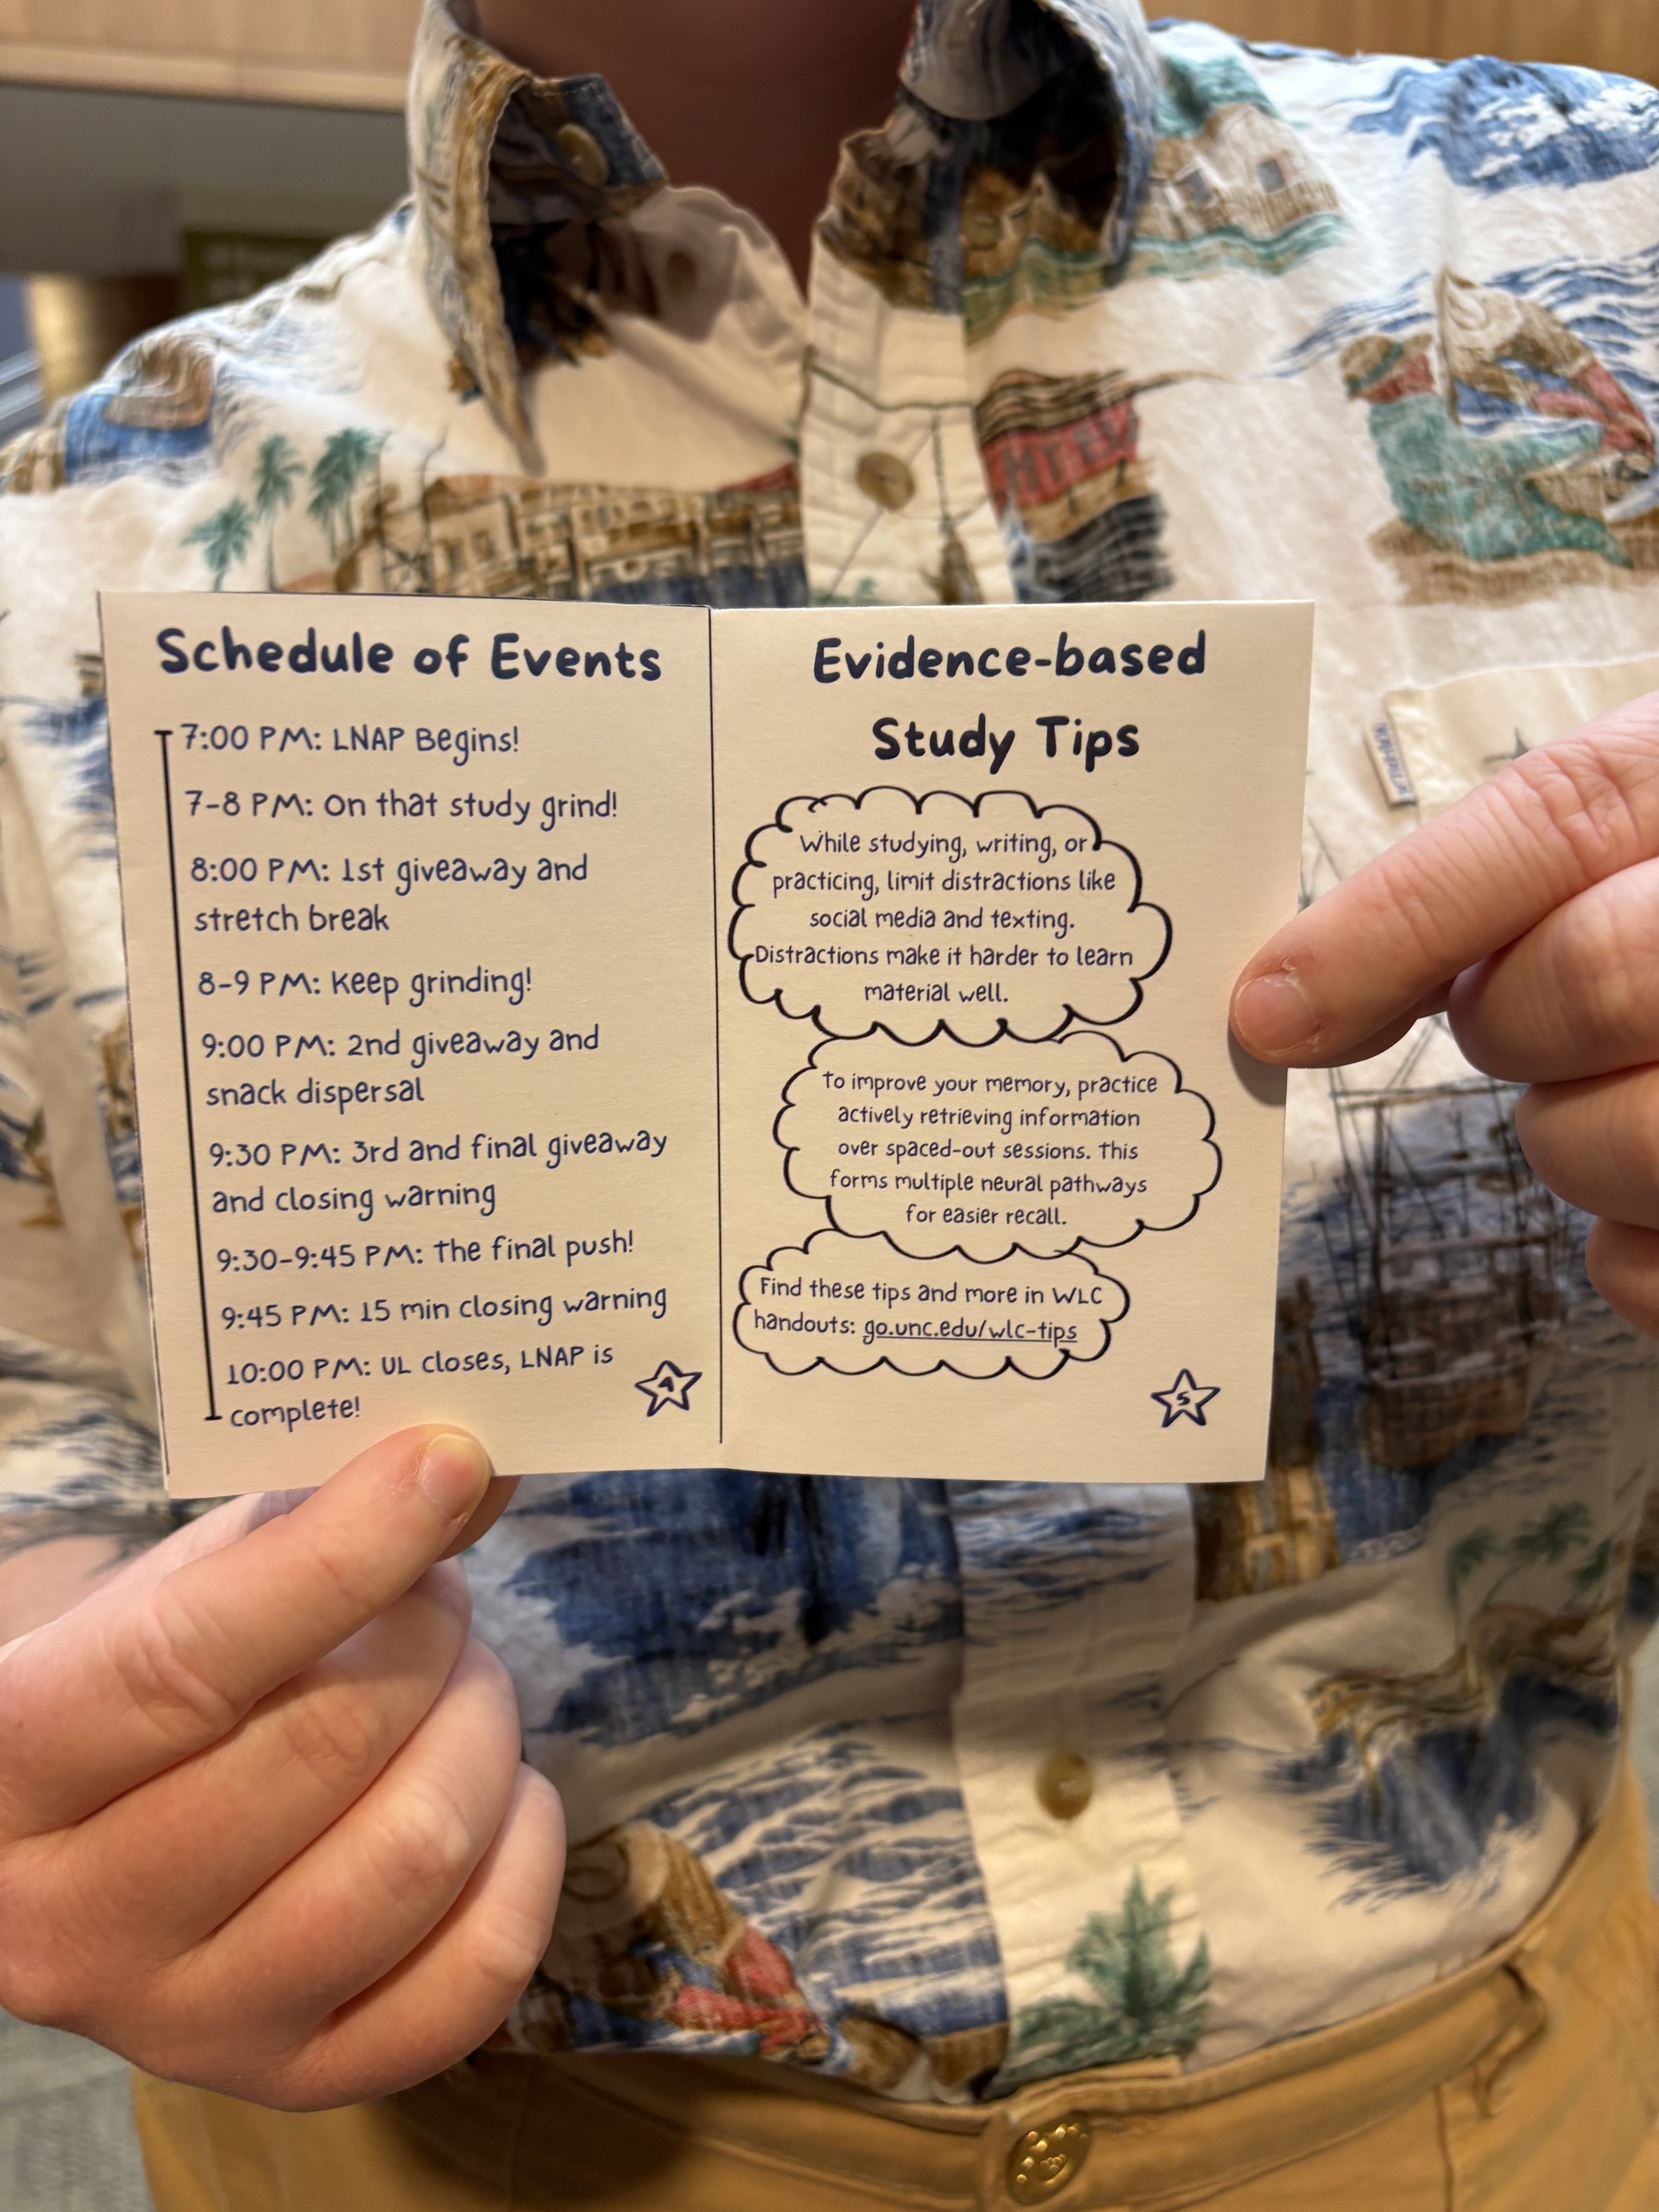 Schedule of Events
7:00 PM: LNAP Begins!
7-8 PM: On that study grind!
8:00 PM: 1st giveaway and
stretch break
8-9 PM: Keep grinding!
9:00 PM: 2nd giveaway and
snack dispersal
9:30 PM: 3rd and final giveaway
and closing warning
9:30-9:45 PM: The final push!
9:45 PM: 15 min closing warning
10:00 PM: UL closes, LNAP is
complete!
4
Evidence-based
Study Tips
While studying, writing, or
practicing, limit distractions like
social media and texting.
Distractions make it harder to learn
material well.
To improve your memory, practice
actively retrieving information
over spaced-out sessions. This
forms multiple neural pathways
for easier recall.
Find these tips and more in WLC
handouts: go.unc.edu/wlc-tips
5